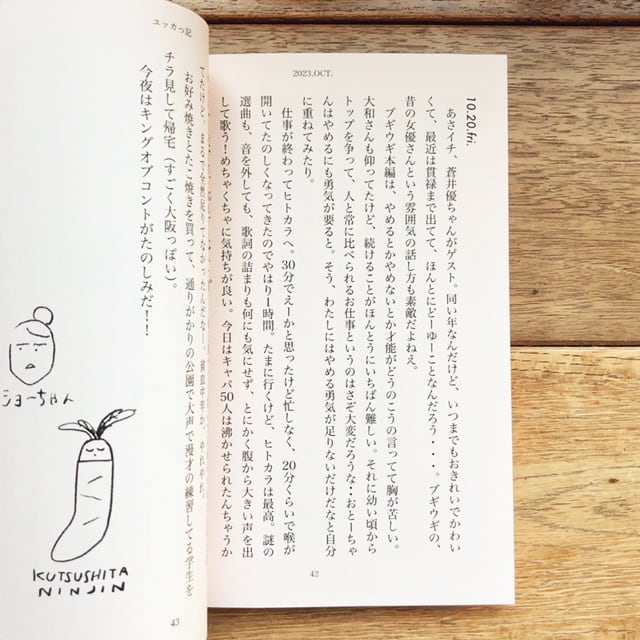 2023.OCT.
10.20.fri.
あさイチ、蒼井優ちゃんがゲスト。同い年なんだけど、いつまでもおきれいでかわい
くて、最近は貫禄まで出てて、ほんとにどーゆーことなんだろう・・・。ブギウギの、
昔の女優さんという雰囲気の話し方も素敵だよねえ。
ブギウギ本編は、やめるとかやめないとか才能がどうのこうの言ってて胸が苦しい。
大和さんも仰ってたけど、続けることがほんとうにいちばん難しい。それに幼い頃から
トップを争って、人と常に比べられるお仕事というのはさぞ大変だろうな・・おとーちゃ
んはやめるにも勇気が要ると。そう、わたしにはやめる勇気が足りないだけだなと自分
に重ねてみたり。
仕事が終わってヒトカラへ。30分でえーかと思ったけど忙しなく、20分くらいで喉が
開いてたのしくなってきたのでやはり1時間。たまに行くけど、ヒトカラは最高。謎の
選曲も、音を外しても、歌詞の詰まりも何にも気にせず、とにかく腹から大きい声を出
して歌う！めちゃくちゃに気持ちが良い。今日はキャパ50人は沸かせられたんちゃうか
42
ユッカっ記
てたけど、まるで全然足りてなかったんだなー。貧血中年か、やれやれ。
お好み焼きとたこ焼きを買って、通りがかりの公園で大声で漫才の練習してる学生を
チラ見して帰宅（すごく大阪っぽい）。
今夜はキングオブコントがたのしみだ！！
ショーちゃん
KUTSUSHITA
NINJIN
43